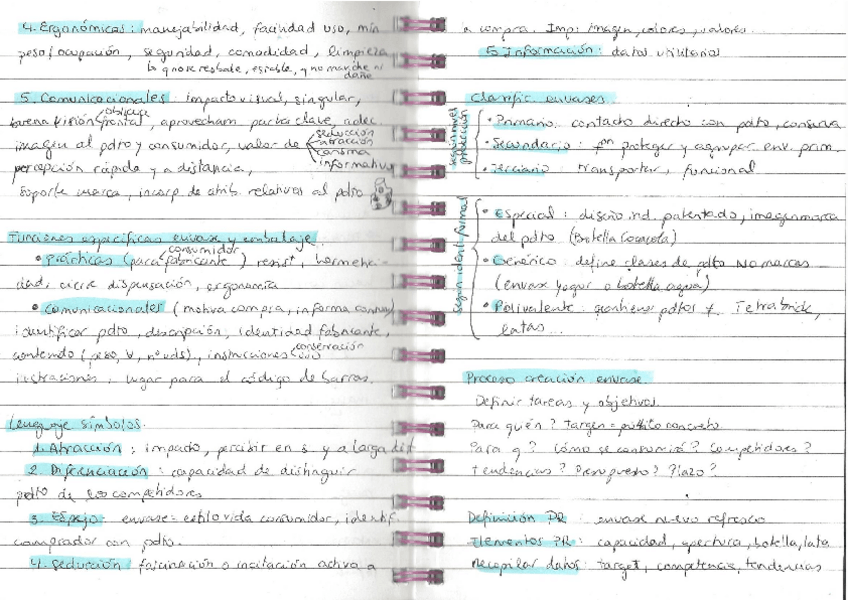 4. Ergonómicas: manejabilidad, facilidad uso, mín
peso/ocupación, seguridad, comodidad, limpieza
lo q no se resbale, estable, y no manche ni
dañe
5. Comunicacionales: impacto visual, singular,
buena fisión frontal, aprovecham parte clave, adec.
objetaje
imagen al pdto y consumidor, valor de
seducción
atracción
informativa
percepción rápida y a distancia,
soporte marca, incorp de atrib. relativos al pdto
Funciones específicas envase y embalaje.
• Prácticas (para fabricante) resist, hermetici-
consumidor
dad, cierre dispensación, ergonomía
• Comunicacionales (motiva compra, informa consum)
identificar pdto, descripción, identidad fabricante,
contenido (peso, V, nº uds), instrucciones uso
conservación
ilustraciones, lugar para el código de barras.
Lenguaje símbolos.
1. Atracción: impacto, percibir en s. y a larga dist
2. Diferenciación: capacidad de distinguir
pdto de sus competidores
3. Espejo: envase = estilo vida consumidor, identif.
comprador con pdto.
4. Seducción: fascinación o incitación activa a
a compra. Imp: imagen, colores, valores...
5. Información: datos utilitarios
Clasific envases
según niveles
protección
• Primario: contacto directo con pdto, conserva
• Secundario: fon proteger y agrupar env. prim.
• Terciario: transportar, funcional
según ident. formal
• Especial: diseño ind. patentado, imagen marca
del pdto (Botella Cocacola)
• Genérico: define clases de pdto NO marcas
(envase yogur o botella agua)
• Polivalente: contiene pdtos ≠. Tetrabrick,
latas...
Proceso creación envase.
Definir tareas y objetivos.
Para quién? Target = público concreto
Para q? Cómo se consumirá? Competidores?
Tendencias? Presupuesto? Plazo?
Definición PR: envase nuevo refresco
Elementos PR: capacidad, apertura, botella, lata
Recopilar datos: target, competencia, tendencias